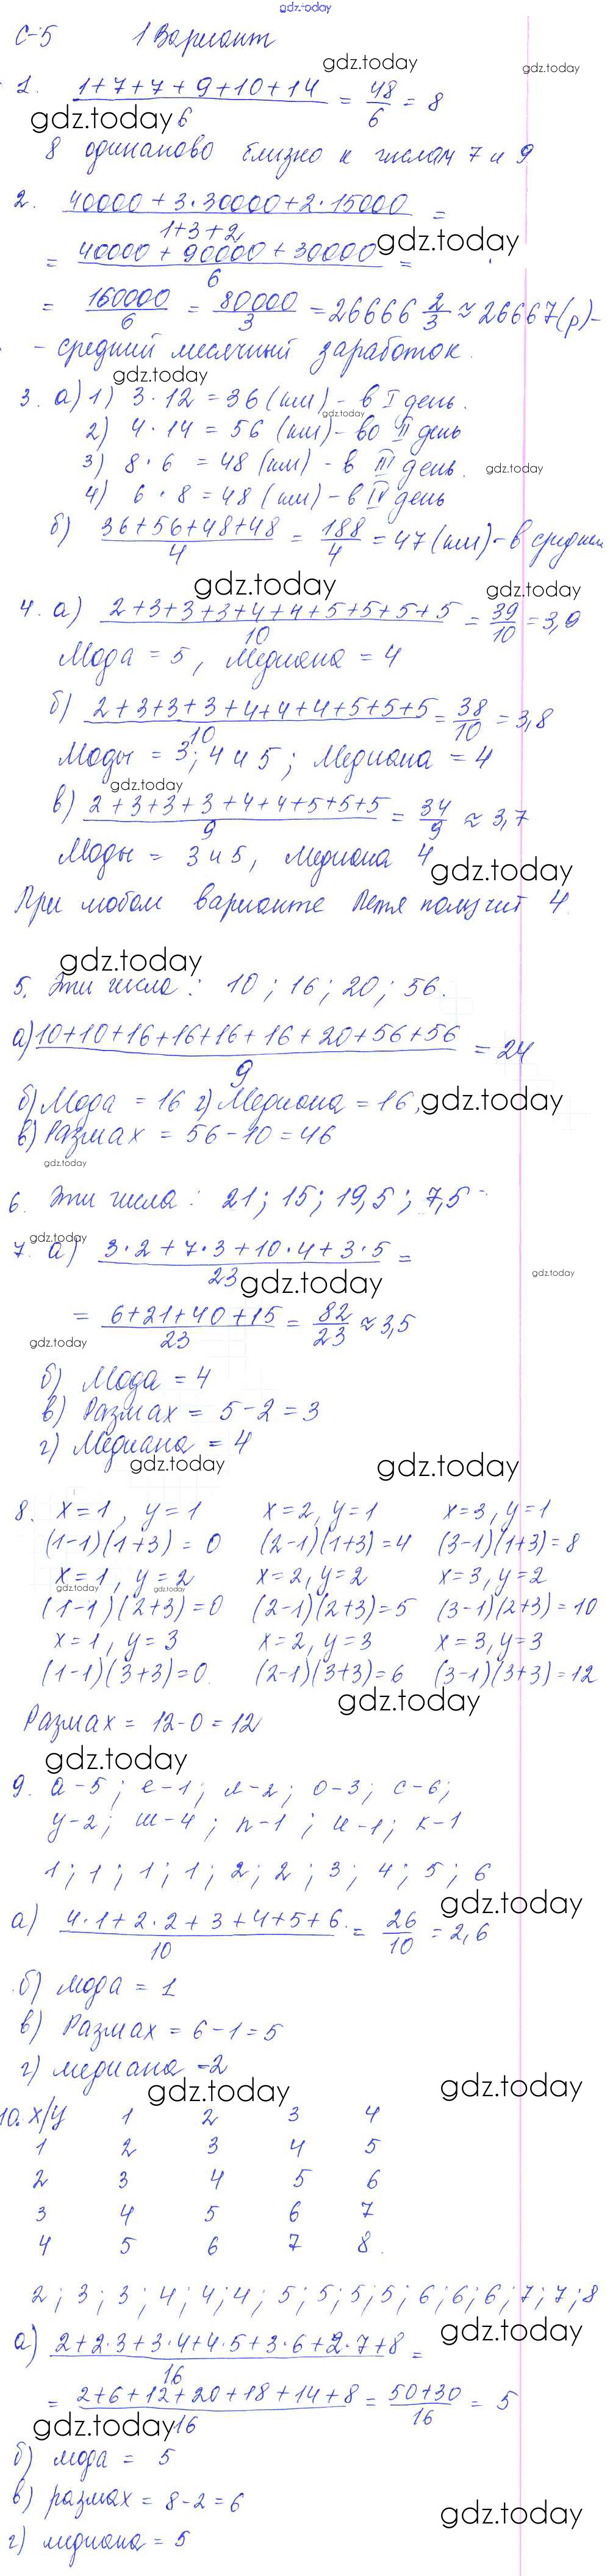 gdz.today
С-5 1 Вариант
gdz.today
gdz.today
1. (1+7+7+9+10+14)/6 = 48/6 = 8
gdz.today
8 одинаково близко к числам 7 и 9
2. (40000+3·30000+2·15000)/(1+3+2) =
gdz.today
= (40000+90000+30000)/6 =
= 160000/6 = 80000/3 = 26666 2/3 ≈ 26667(р)-
- средний месячный заработок.
gdz.today
3. а) 1) 3·12=36 (км) - в I день.
gdz.today
2) 4·14=56 (км) - во II день
3) 8·6=48 (км) - в III день.
gdz.today
4) 6·8=48 (км) - в IV день
б) (36+56+48+48)/4 = 188/4 = 47 (км) - в среднем
gdz.today
gdz.today
4. а) (2+3+3+3+4+4+5+5+5+5)/10 = 39/10 = 3,9
Мода = 5, Медиана = 4
б) (2+3+3+3+4+4+4+5+5+5)/10 = 38/10 = 3,8
Моды = 3; 4 и 5; Медиана = 4
gdz.today
в) (2+3+3+3+4+4+5+5+5)/9 = 34/9 ≈ 3,7
Моды = 3 и 5, медиана 4
gdz.today
При любом варианте Петя получит 4.
gdz.today
5. Эти числа: 10; 16; 20; 56.
а) (10+10+16+16+16+16+20+56+56)/9 = 24
б) Мода = 16 г) Медиана = 16,
gdz.today
в) Размах = 56-10=46
gdz.today
6. Эти числа: 21; 15; 19,5; 7,5
gdz.today
7. а) (3·2+7·3+10·4+3·5)/23 =
gdz.today
gdz.today
= (6+21+40+15)/23 = 82/23 ≈ 3,5
gdz.today
б) Мода = 4
в) Размах = 5-2=3
г) Медиана = 4
gdz.today
gdz.today
8. x=1, y=1 x=2, y=1 x=3, y=1
(1-1)(1+3)=0 (2-1)(1+3)=4 (3-1)(1+3)=8
x=1, y=2 x=2, y=2 x=3, y=2
gdz.today
gdz.today
(1-1)(2+3)=0 (2-1)(2+3)=5 (3-1)(2+3)=10
x=1, y=3 x=2, y=3 x=3, y=3
(1-1)(3+3)=0. (2-1)(3+3)=6 (3-1)(3+3)=12
gdz.today
Размах = 12-0=12
gdz.today
9. а-5; е-1; л-2; о-3; с-6;
у-2; ш-4; п-1; и-1; к-1
1; 1; 1; 1; 2; 2; 3; 4; 5; 6
gdz.today
а) (4·1+2·2+3+4+5+6)/10 = 26/10 = 2,6
б) мода = 1
в) Размах = 6-1=5
г) медиана -2
gdz.today
gdz.today
10. x/y 1 2 3 4
1 2 3 4 5
2 3 4 5 6
3 4 5 6 7
4 5 6 7 8.
2; 3; 3; 4; 4; 4; 5; 5; 5; 5; 6; 6; 6; 7; 7; 8
gdz.today
а) (2+2·3+3·4+4·5+3·6+2·7+8)/16 =
= (2+6+12+20+18+14+8)/16 = (50+30)/16 = 5
gdz.today
б) мода = 5
в) размах = 8-2=6
gdz.today
г) медиана = 5